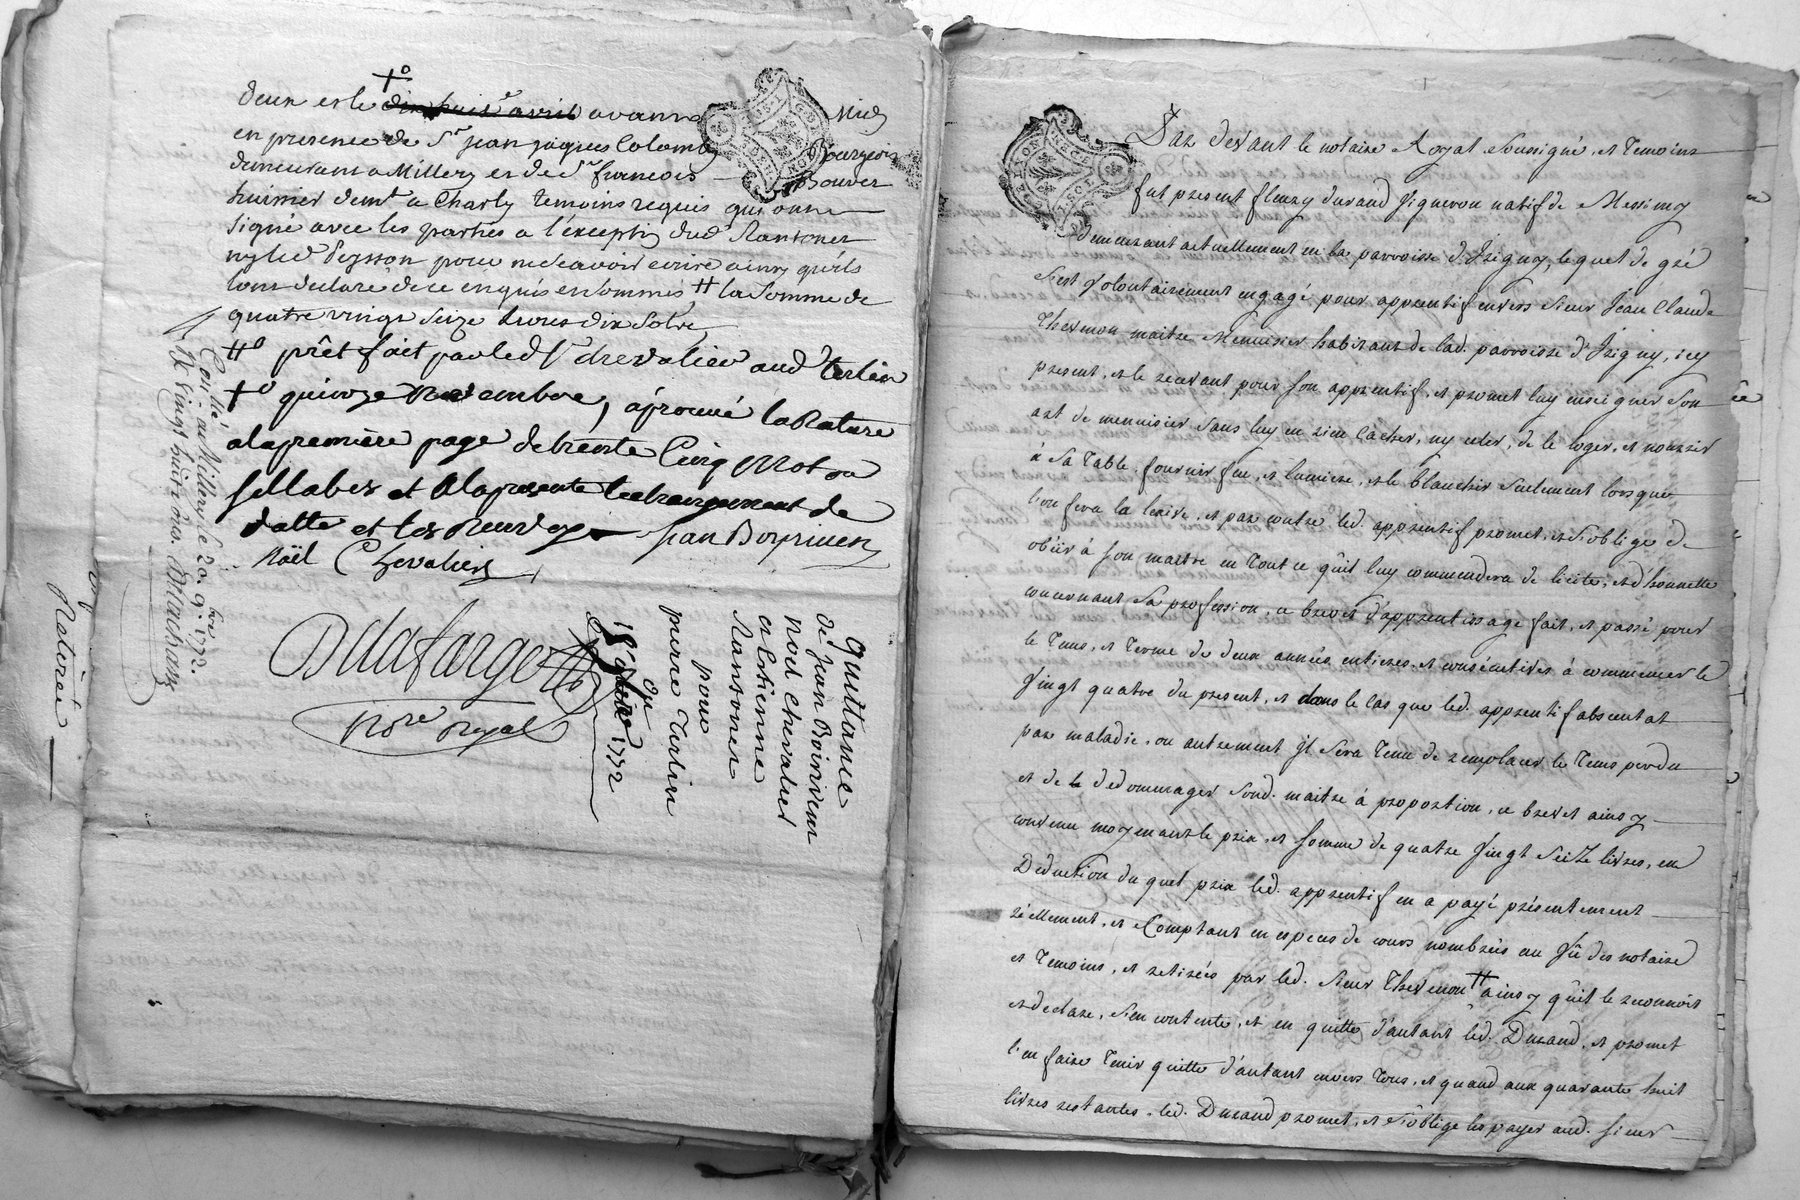 deux et le dix huit avril avant Midy
en presence de Sr. jean jaques Colomb Bourgeois
demeurant a Millery et de Sr. francois Bouver
huissier demt. a Charly temoins requis qui ont
signé avec les parties a l'exception dud. Rantonet
ny led. Peysson pour ne scavoir ecrire ainsy qu'ils
l'ont declaré de ce enquis et sommés # la Somme de
quatre vingt seize livres dix sols
#° prêt fait par led. Sr. chevalier aud. terlin
+° quinze Novembre, aprouvé la Rature
a la première page de trente Cinq Mot ou
sillabes et a la presente le changement de
datte et les renvoys jean Boiriven
Noël Chevalier
Delafarge
Nore. Royal
Conlé. a Millery le 20 9bre. 1772.
Rx vingt huit sous. Machars
Quittance
de jean Boiriven
noel chevalier
et Estienne
Rantonet
pour
pierre Terlin
du
15 9bre 1772
Retirée
Par devant le notaire Royal soussigné, et temoins
fut present fleury durand vigneron natif de Messimy
demeurant actuellement en la parroisse d'Irigny, lequel de gré
s'est volontairement engagé pour apprentif envers sieur Jean Claude
Thevenon maitre Menuisier habitant de lad. parroisse d'Irigny, icy
present, et le recevant pour son apprentif, et promet luy enseigner son
art de menuisier sans luy en rien cacher, ny celer, de le loger, et nourrir
à sa table, fournir feu, et lumiere, et le blanchir seulement lorsque
l'on fera la lecive, et par contre led. apprentif promet, et s'oblige de
obéir à son maitre en tout ce qu'il luy commendera de licite, et d'honnette
concernant sa profession, ce brevet d'apprentissage fait, et passé pour
le tems, et terme de deux années entieres et consécutives à commencer le
vingt quatre du present, et dans le cas que led. apprentif absentat
par maladie, ou autrement il sera tenu de remplacer le tems perdu
et de le dedommager sond. maitre à proportion, ce brevet ainsy
convenu moyennant le prix, et somme de quatre vingt seize livres, en
Deduction du quel prix led. apprentif en a payé présentement
réellement, et Comptant en especes de cours nombrées au vû des notaire
et temoins, et retirées par led. sieur Thevenon # ainsy qu'il le reconnoit
et declare, s'en contente, et en quitte d'autant led. Durand, et promet
l'en faire tenir quitte d'autant envers tous, et quand aux quarante huit
livres restantes, led. Durand promet, et s'oblige les payer aud. sieur